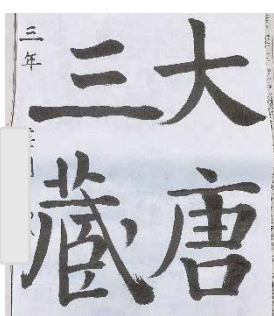 大唐
三蔵
三年